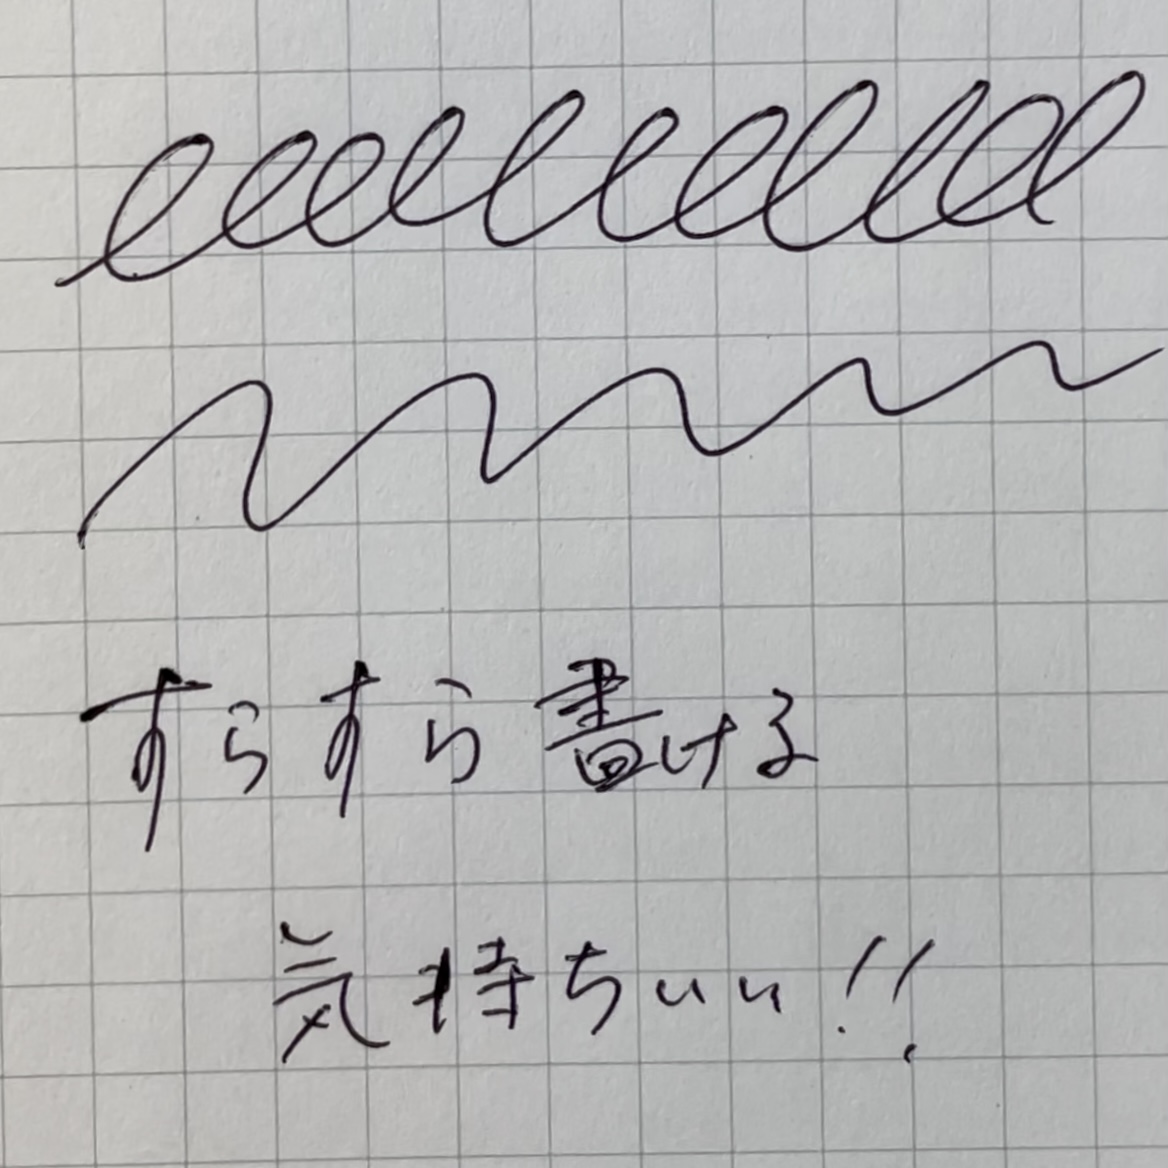 すらすら書ける
気持ちいい!!